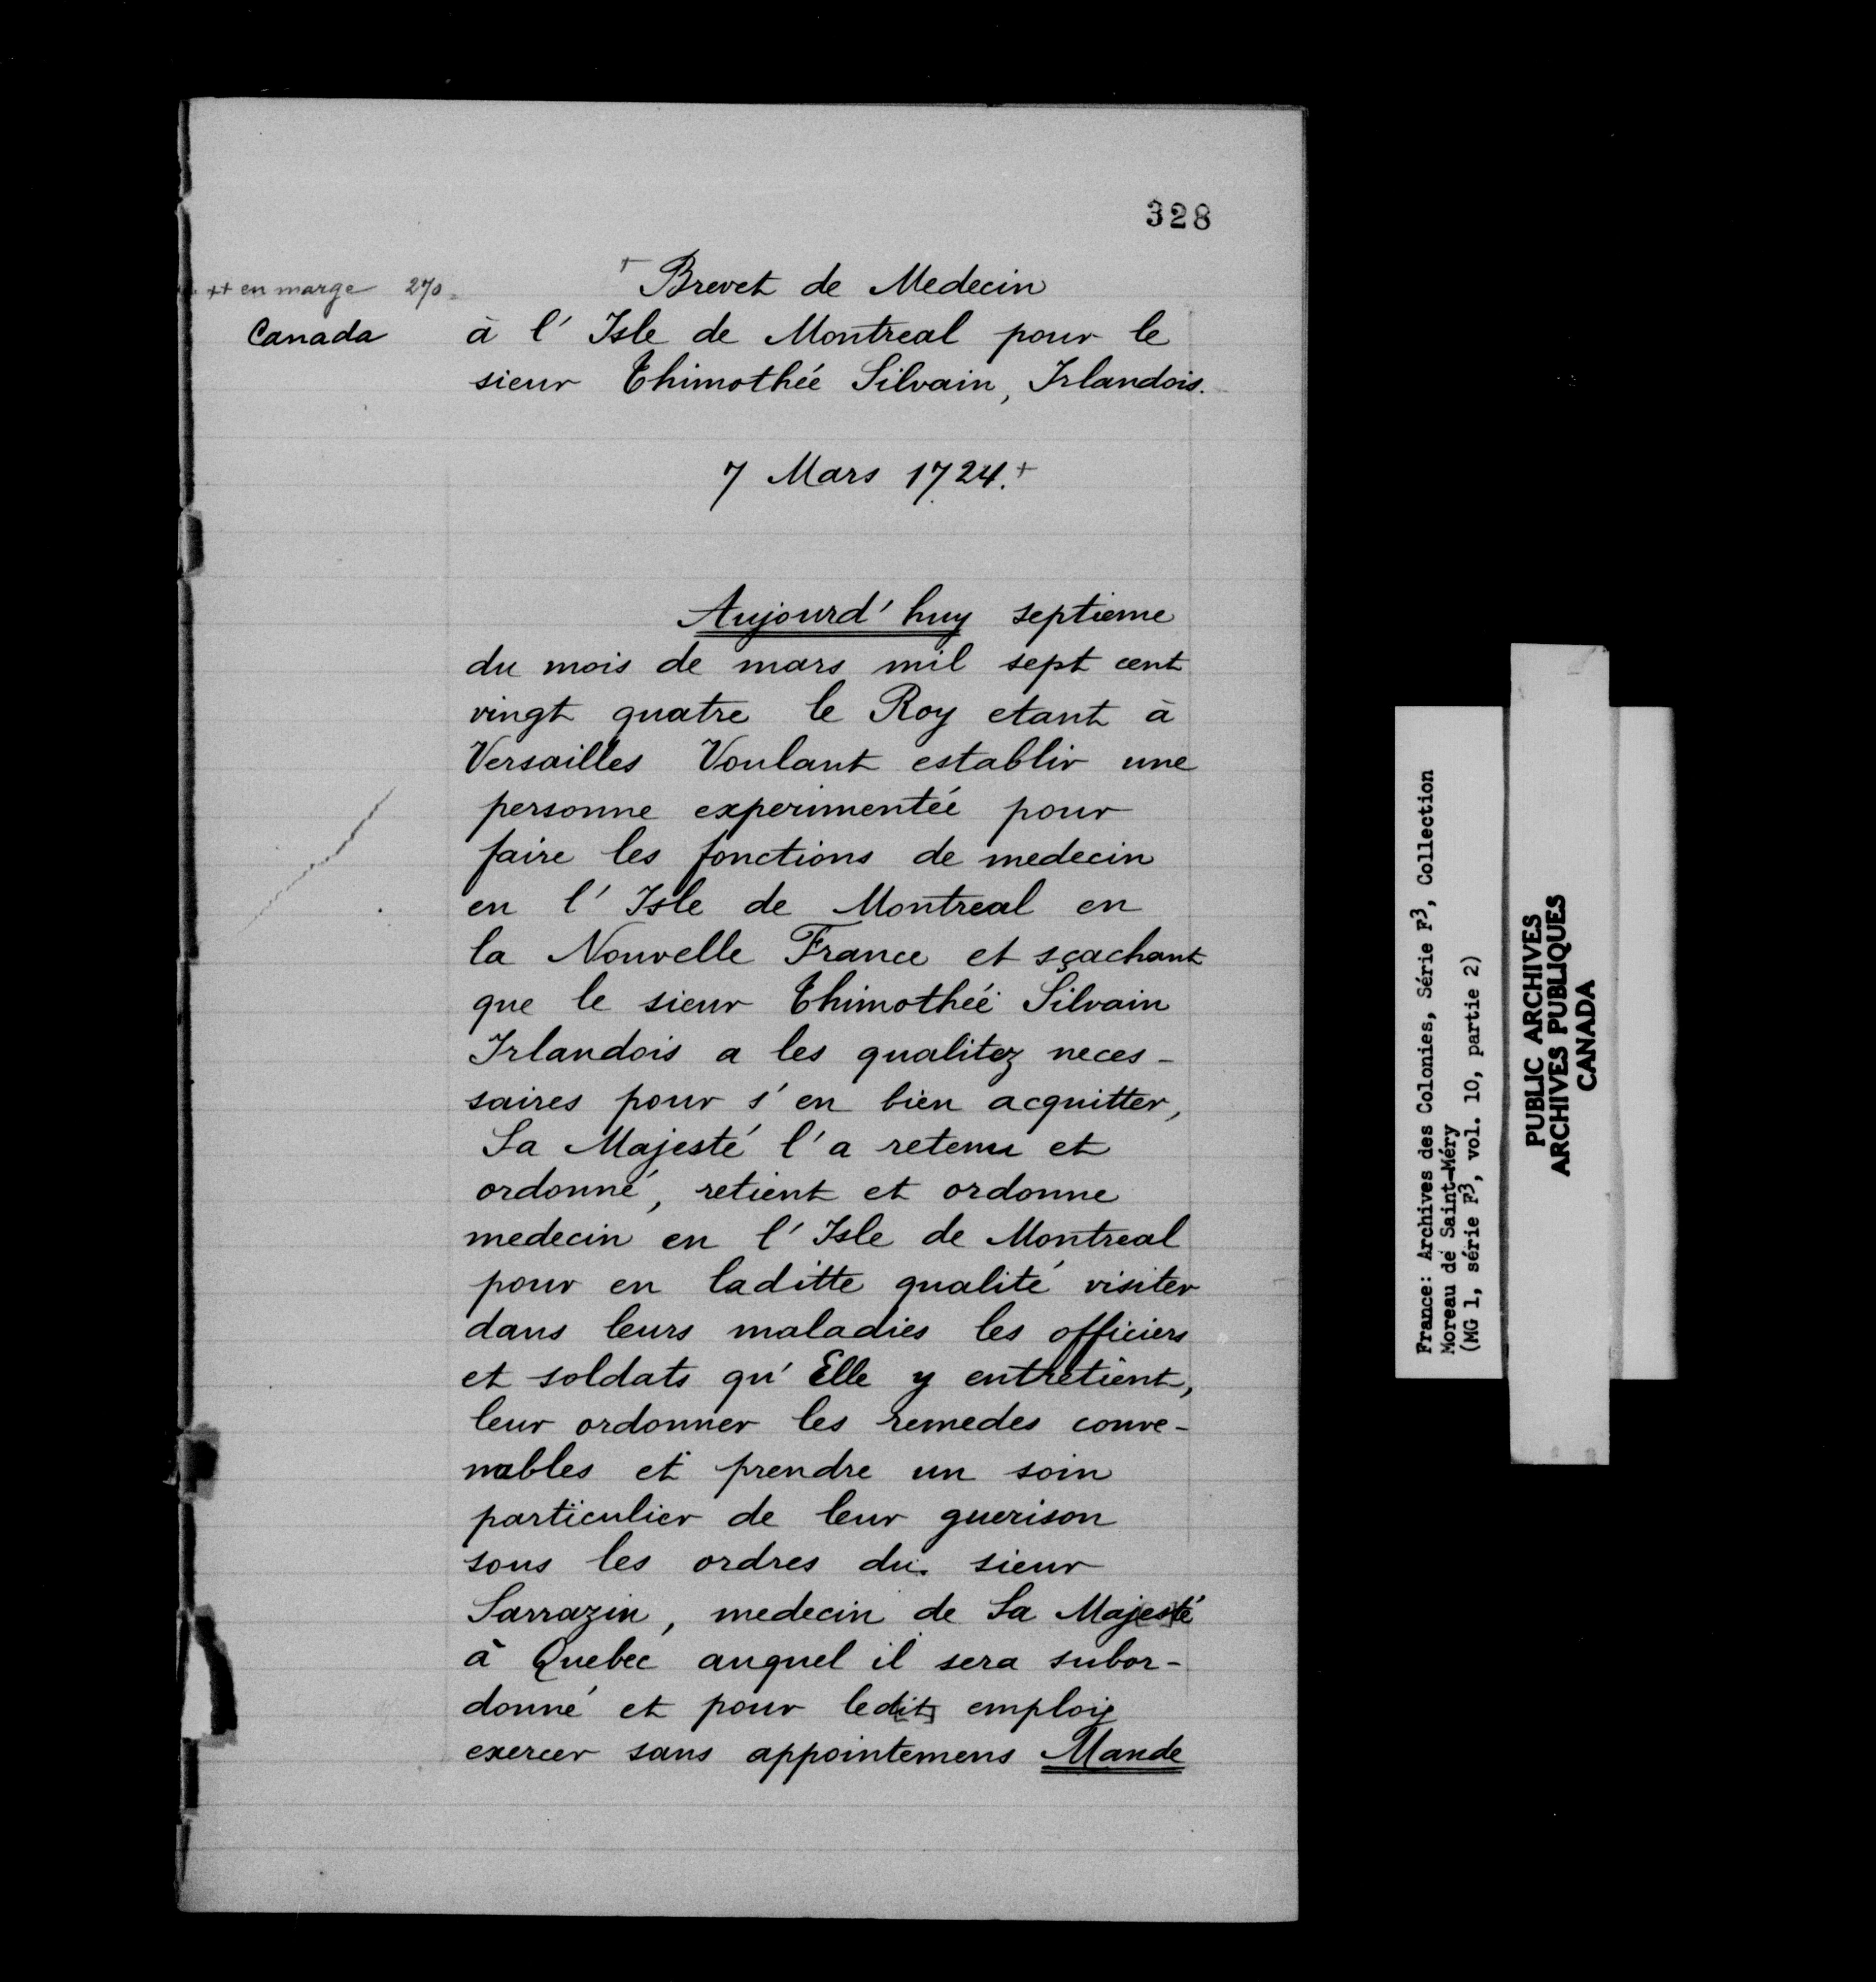 328
++ en marge 270
Canada
+ Brevet de Medecin
à l'Isle de Montreal pour le
sieur Thimothée Silvain, Irlandois.
7 Mars 1724.+
Aujourd'huy septieme
du mois de mars mil sept cent
vingt quatre le Roy etant à
Versailles Voulant establir une
personne experimentée pour
faire les fonctions de medecin
en l'Isle de Montreal en
la Nouvelle France et sçachant
que le sieur Thimothée Silvain
Irlandois a les qualitez neces-
saires pour s'en bien acquitter,
Sa Majesté l'a retenu et
ordonné, retient et ordonne
medecin en l'Isle de Montreal
pour en laditte qualité visiter
dans leurs maladies les officiers
et soldats qu'Elle y entretient,
leur ordonner les remedes conve-
nables et prendre un soin
particulier de leur guerison
sous les ordres du sieur
Sarrazin, medecin de Sa Majesté
à Quebec auquel il sera subor-
donné et pour ledit employ
exercer sans appointemens Mande
France: Archives des Colonies, Série F3, Collection
Moreau de Saint-Méry
(MG 1, série F3, vol. 10, partie 2)
PUBLIC ARCHIVES
ARCHIVES PUBLIQUES
CANADA